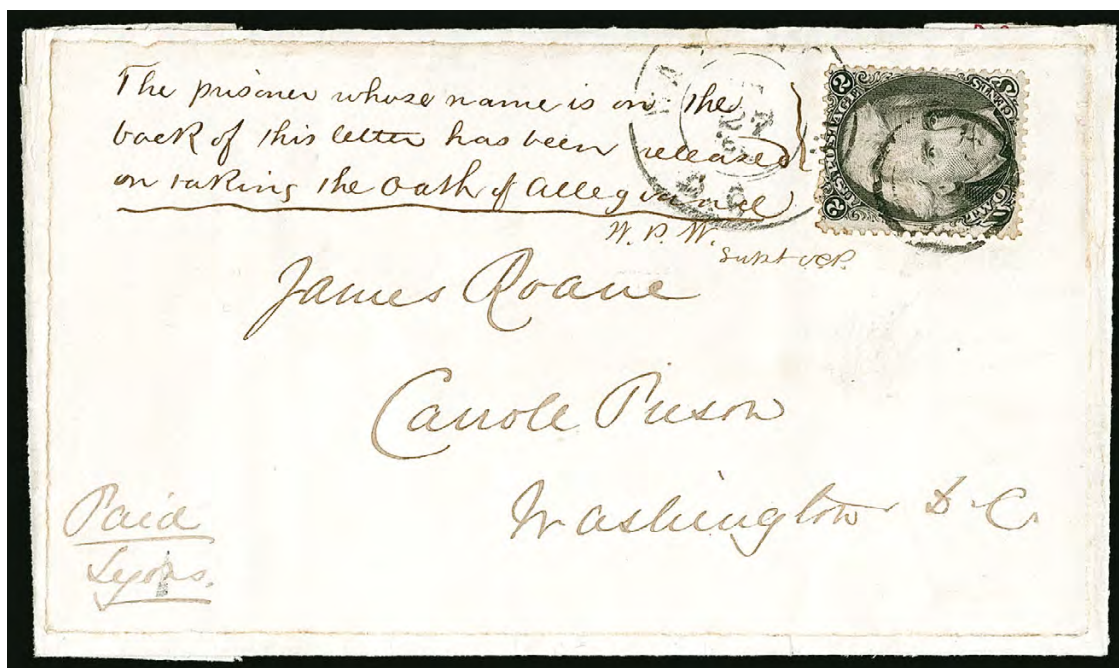 The prisoner whose name is on the
back of this letter has been released
on taking the Oath of Allegiance
W. P. W.
Supt OCP.
James Roane
Carrole Prison
Washington D. C.
Paid
Lyons.
U.S. POSTAGE
TWO
2
2